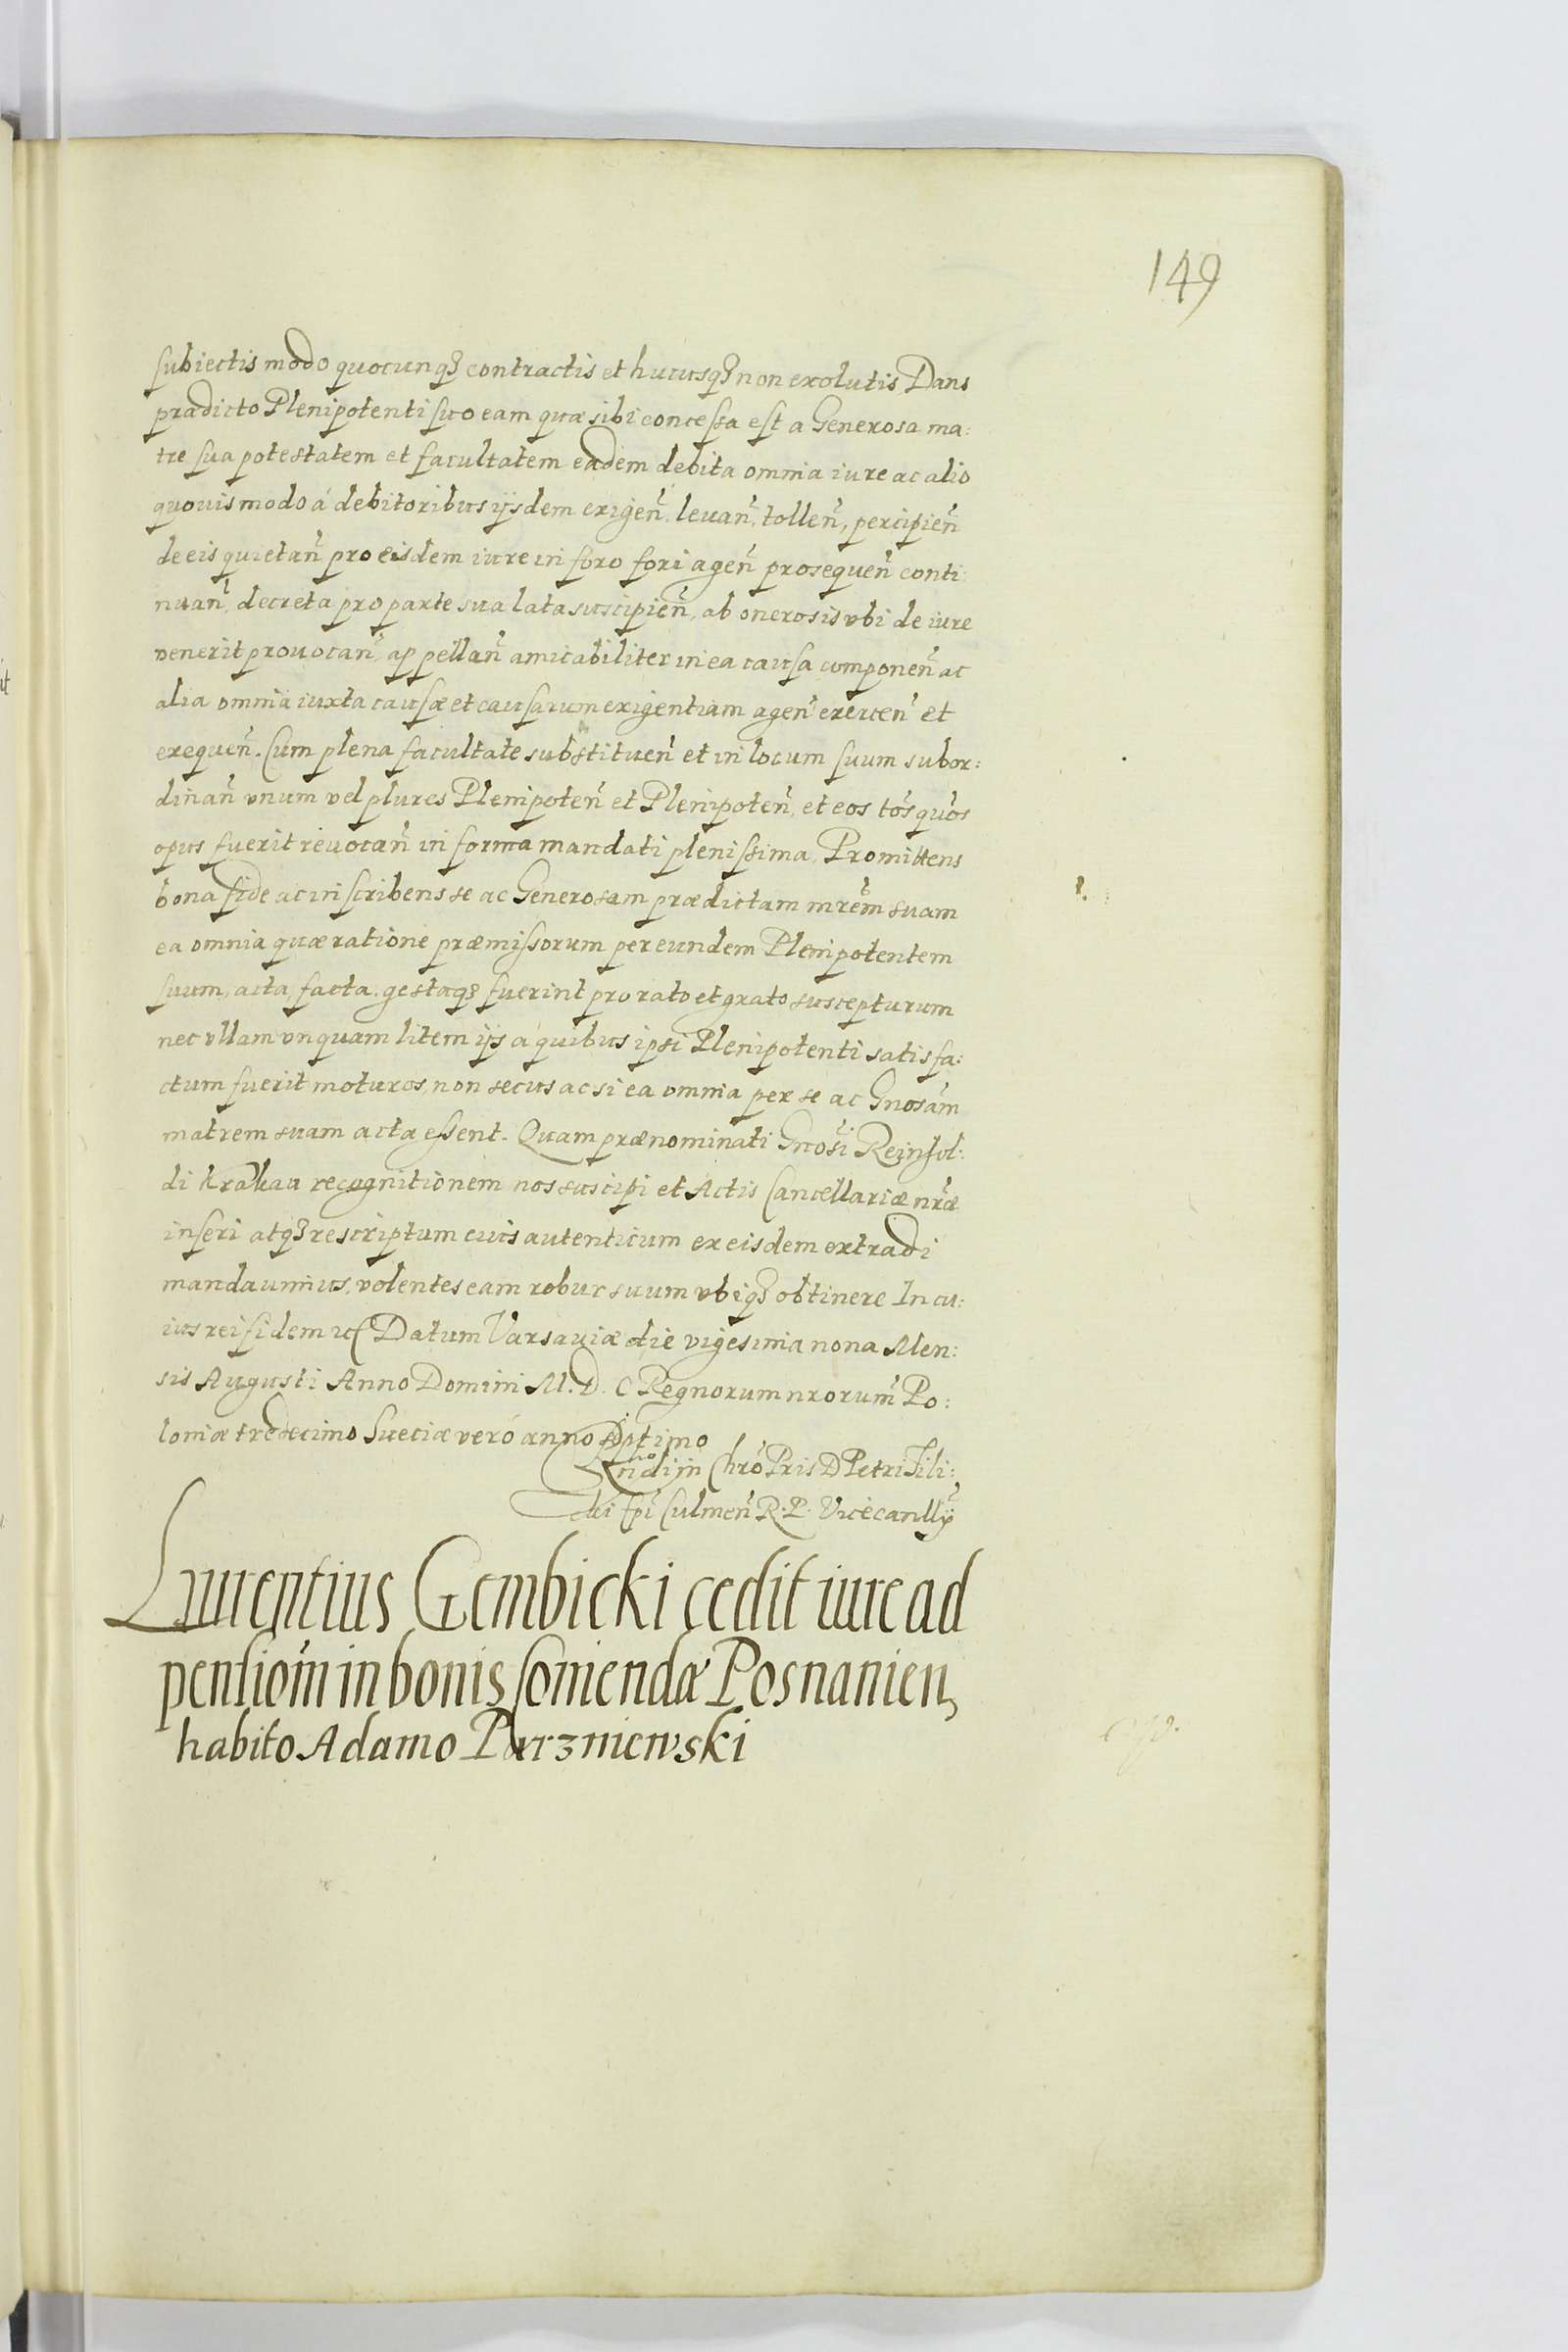 149
subiectis modo quocunqȝ contractis et hucusqȝ non exolutis Dans
prædicto Plenipotenti suo eam quæ sibi concessa est a Generosa ma:
tre sua potestatem et facultatem eadem debita omnia iure ac alio
quouis modo á debitoribus ijsdem exigeñ, leuañ, tolleñ, percipieñ
de eis quietañ pro eisdem iure in foro fori ageñ prosequeñ conti:
nuañ, decreta pro parte sua lata suscipieñ, ab onerosis vbi de iure
venerit prouocañ, appellañ amicabiliter in ea causa componeñ ac
alia omnia iuxta causæ et causarum exigentiam ageñ exerceñ et
exequeñ. Cum plena facultate substitueñ et in locum suum subor:
dinañ vnum vel plures Plenipoteñ et Plenipoteñ, et eos tós quós
opus fuerit reuocañ in forma mandati plenissima, Promittens
bona fide ac inscribens se ac Generosam prædictam mrẽm suam
ea omnia quæ ratione præmissorum per eundem Plenipotentem
suum, acta, facta, gestaqȝ fuerint pro rato et grato suscepturum
nec vllam vnquam litem ijs á quibus ipsi Plenipotenti satisfa:
ctum fuerit moturos, non secus ac si ea omnia per se ac Gnosám
matrem suam acta essent. Quam prænominati Gnosi Reinhol:
di Krakau recognitionem nos suscipi et Actis Cancellariæ nræ
inseri atqȝ rescriptum eius autenticum ex eisdem extradi
mandauimus, volentes eam robur suum vbiqȝ obtinere In cu:
ius rei fidem etc Datum Varsauiæ die vigesima nona Men:
sis Augusti Anno Domini M.D.C Regnorum nrorum Po:
loniæ tredecimo Sueciæ veró anno septimo
Rndi in Chro Pris D Petri Tili:
cki Epi Culmeñ R. P. Vicecanllÿ
Laurentius Gembicki cedit iure ad
pensiom in bonis Comendæ Posnanien,
habito Adamo Parzniewski